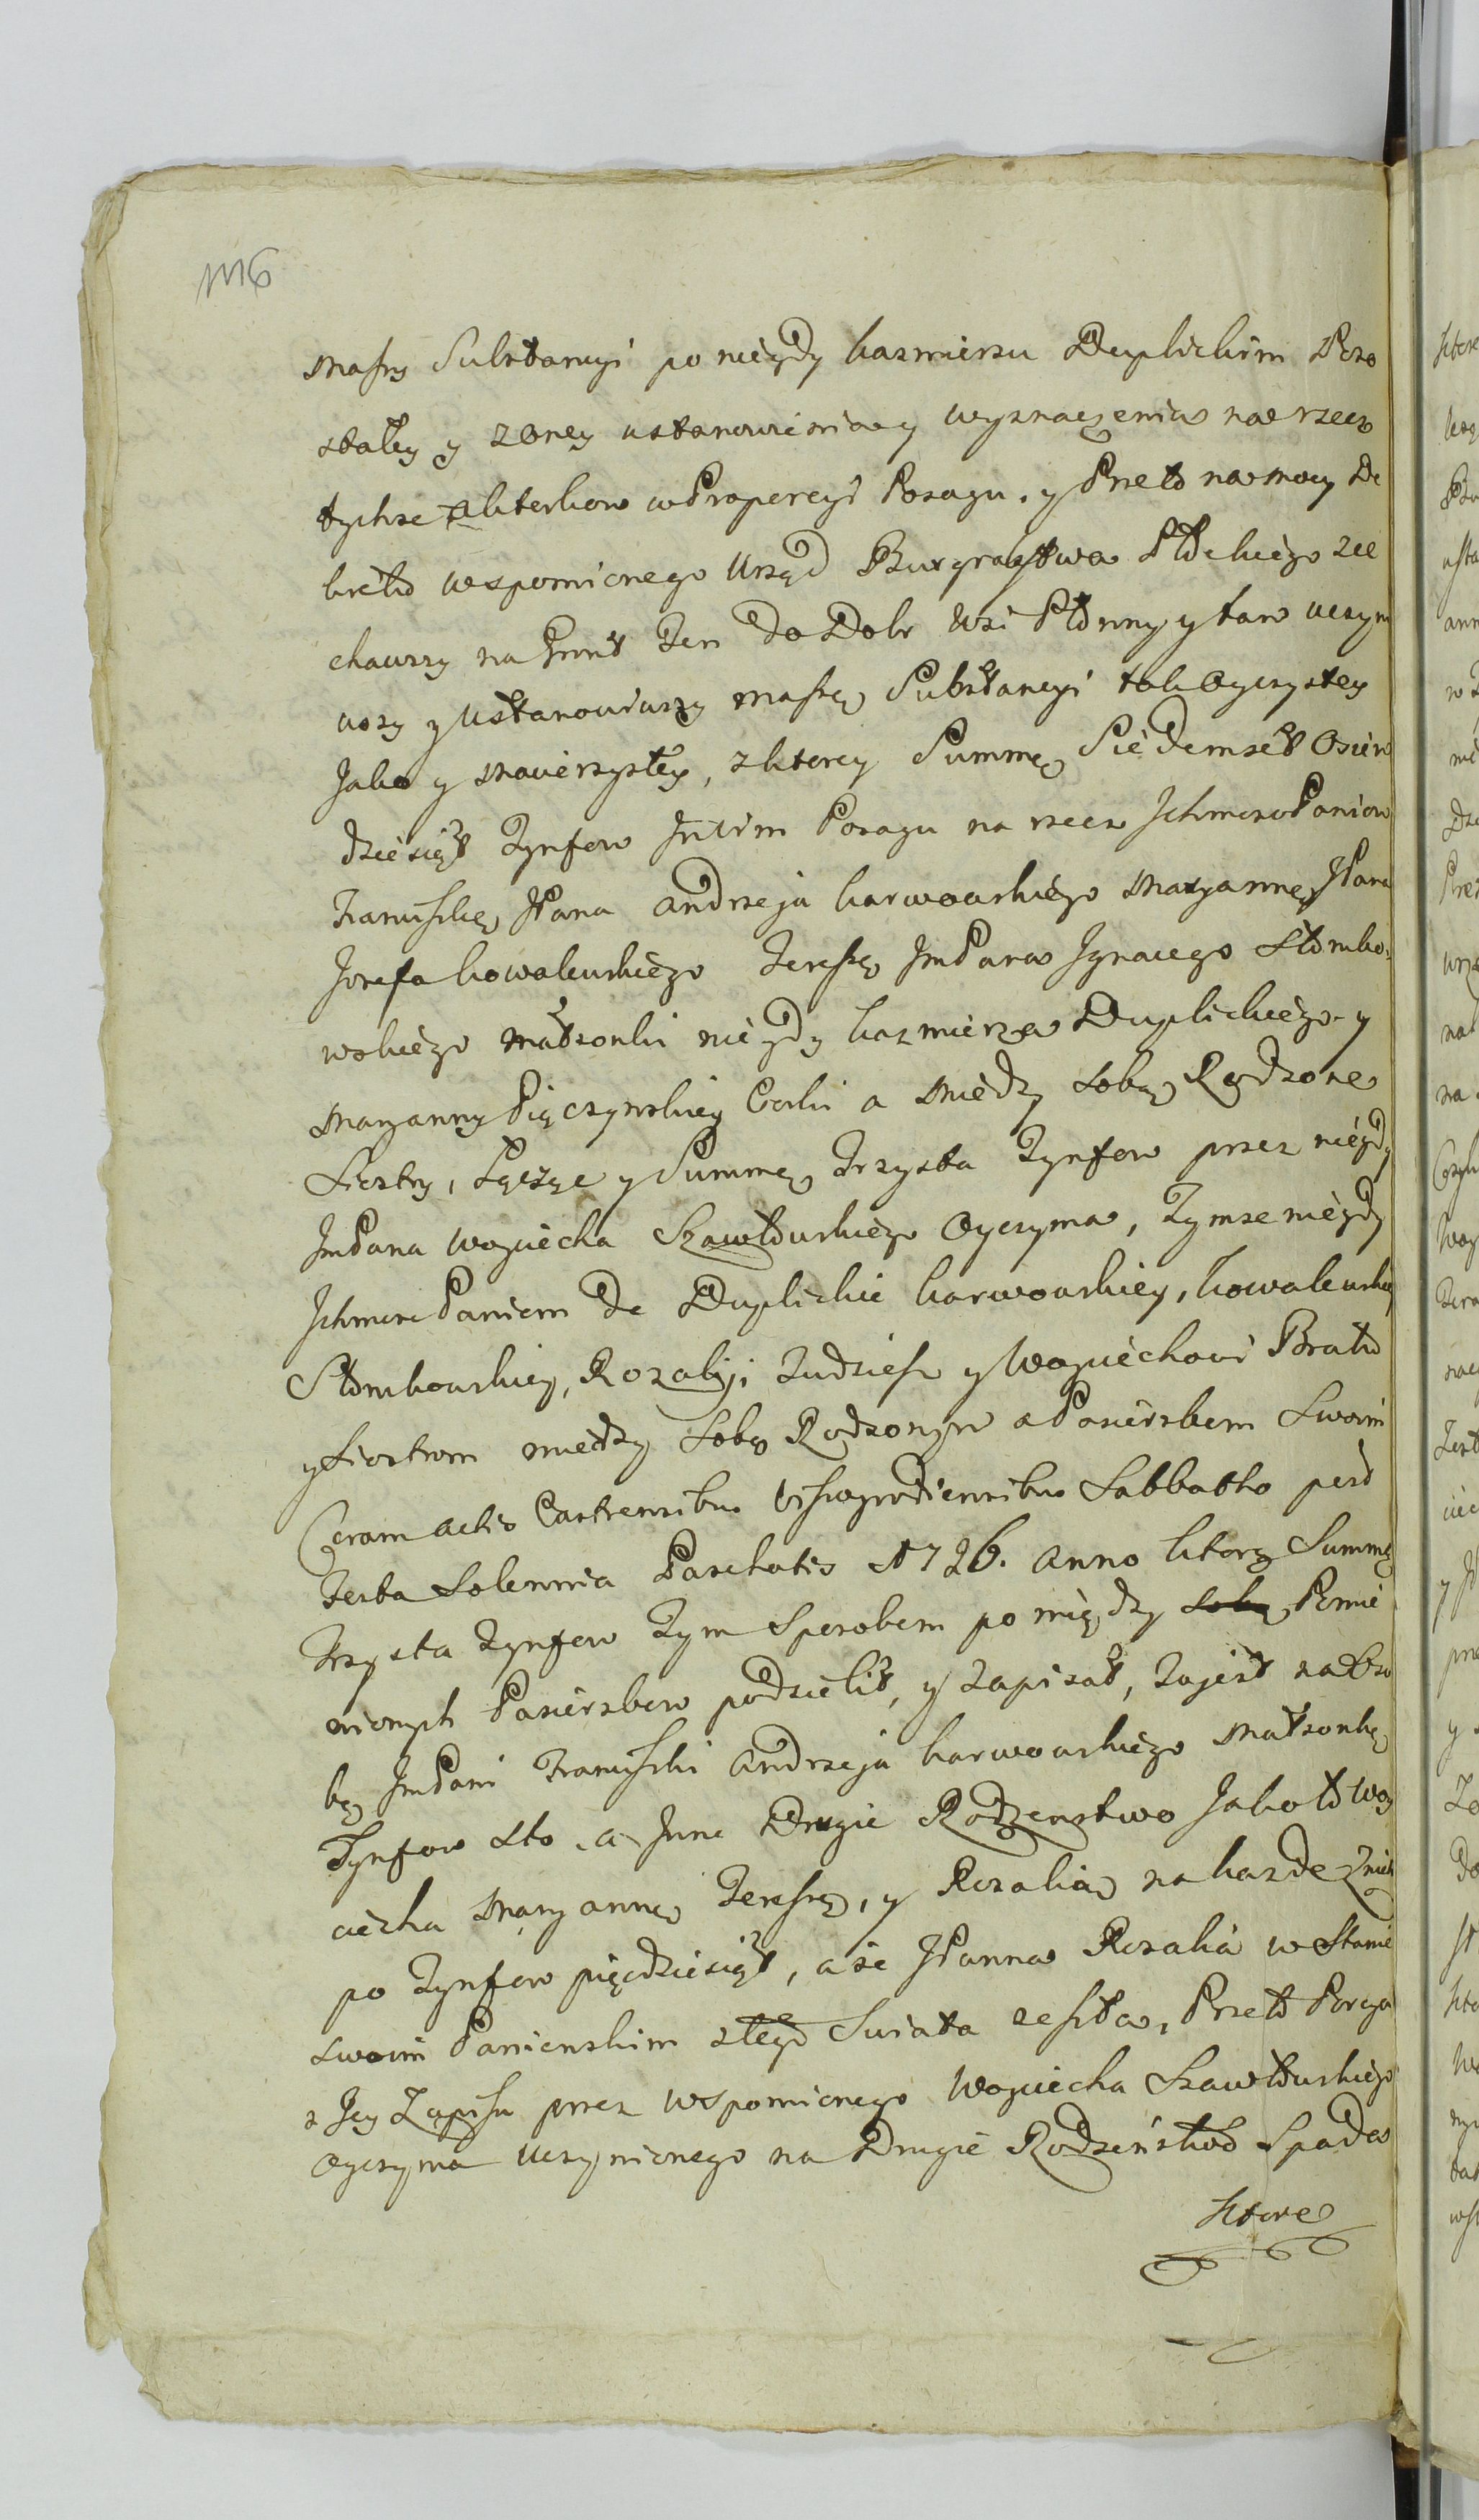 1116
Massy Substancyi po niegdy kazmierzu Duplickim Pozo
stałey y zoney ustanowienia y wyznaczenia na rzecz
tychze Aktorkow w Proporcyi Posagu. y Przeto na mocy De
kretu wspomionego Urząd Burgrabstwa Płckiego zie
chawszy na Grunt Ten do Dobr Wsi y tam uczyni
wszy y Ustanowiwszy Massę Substancyi tak Oyczystey
Jako y Macierzystey, z ktorey Summę Siedemset Osiem
dziesiąt Tynfow Intim Posagu na rzecz Ichmcow Paniow
Franciszkę JPana Andrzeja karwowskiego Maryannę JPana
Jozefa kowalewskiego Teressę JmPana Ignacego Słomko,
wskiego małzonki niegdy kazmierza Duplickiego y
Maryanny Pięczynskiey Corki a Miedzy Sobą Rodzone
Siestry, Łącząc y Summę Trzysta Tynfow przez niegdy
JmPana Woyciecha Szawłowskiego Oyczyma, Tymze niegdy
Ichmcom Paniom de Duplickie karwowskiey, kowalewskiey
Słomkowskiey, Rozalij; Tudziesz y Woyciechowi Bratu
y Siostrom miedzy Sobą Rodzonym a Pasierzbom Swoim
Coram actis Castrensibus Vissogrodiensibus Sabbatho post
Festa Solennia Paschatis 1726. Anno ktorą Summę
Trzysta Tynfow Tym Sposobem po między Sobą Pomie
nionych Pasierzbow podzielił, y zapisał, To jest na Oso
bę JmPani Franciszki Andrzeja karwowskiego Małzonkę
Tynfow Sto. a Inne Drugie Rodzenstwo Jako to Woy
ciecha Maryannę Teressę, y Rozalią na kazde z nich
po Tynfow pięcdziesiąt, a ze JPanna Rozalia w Stanie
Swoim Panienskim z tego Swiata zeszła, Przeto Porcya
z Jey Zapisu przez Wspomionego Woyciecha Szawłowskiego
Oyczyma uczynionego na Drugie Rodzeństwo Spada
Ktore